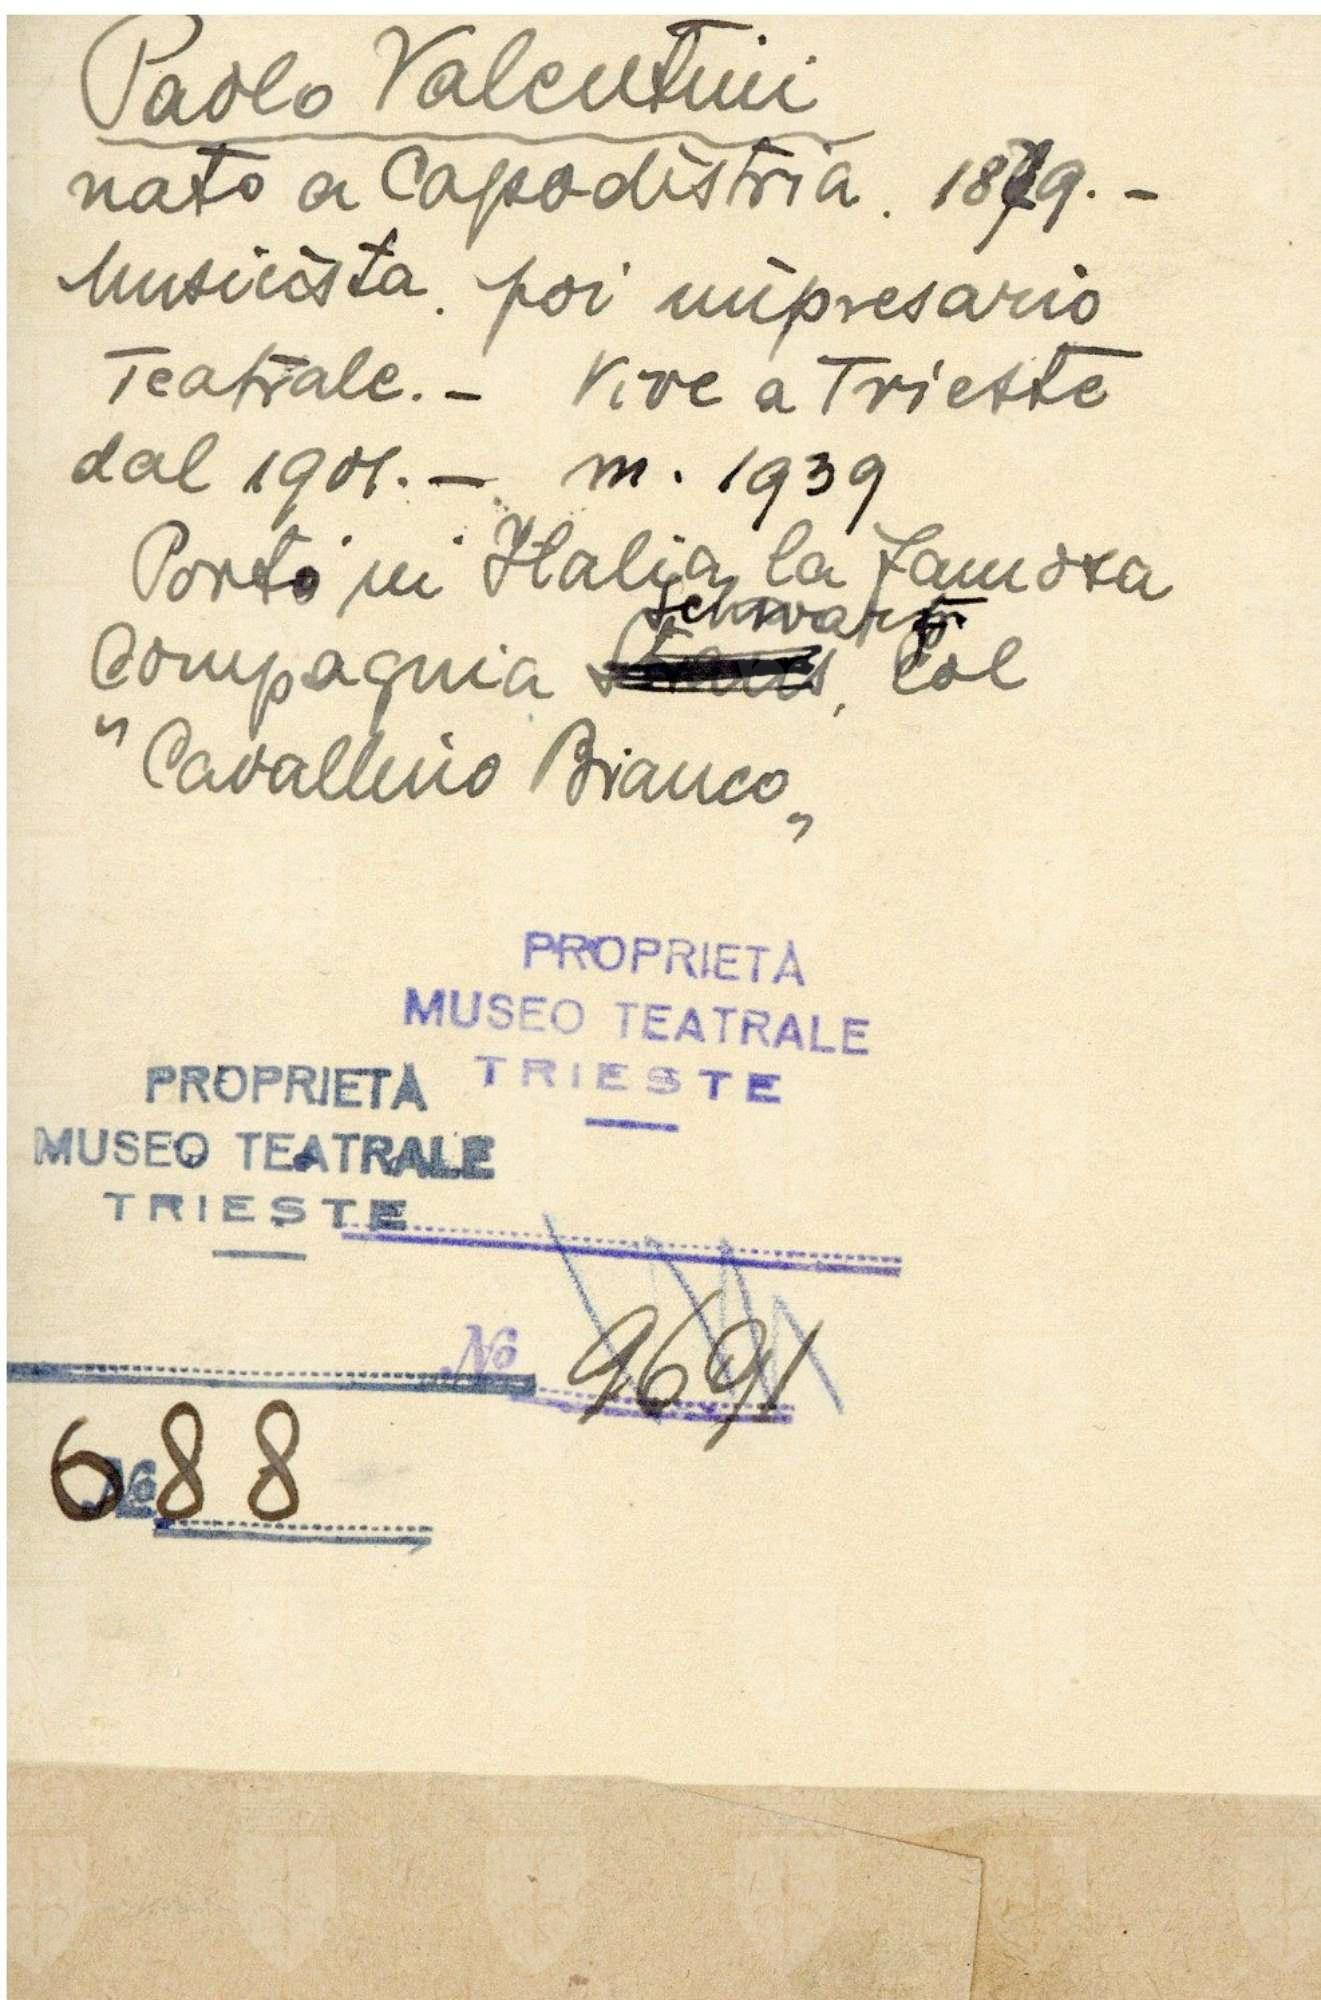 Paolo Valentini
nato a Capodistria. 1879. -
Musicista. poi impresario
Teatrale. - Vive a Trieste
dal 1901. - m. 1939
Portò in Italia la famosa
Schwarz
Compagnia , Col
"Cavallino Bianco„
PROPRIETÀ
MUSEO TEATRALE
TRIESTE
PROPRIETÀ
MUSEO TEATRALE
TRIESTE
No 9691
No 688